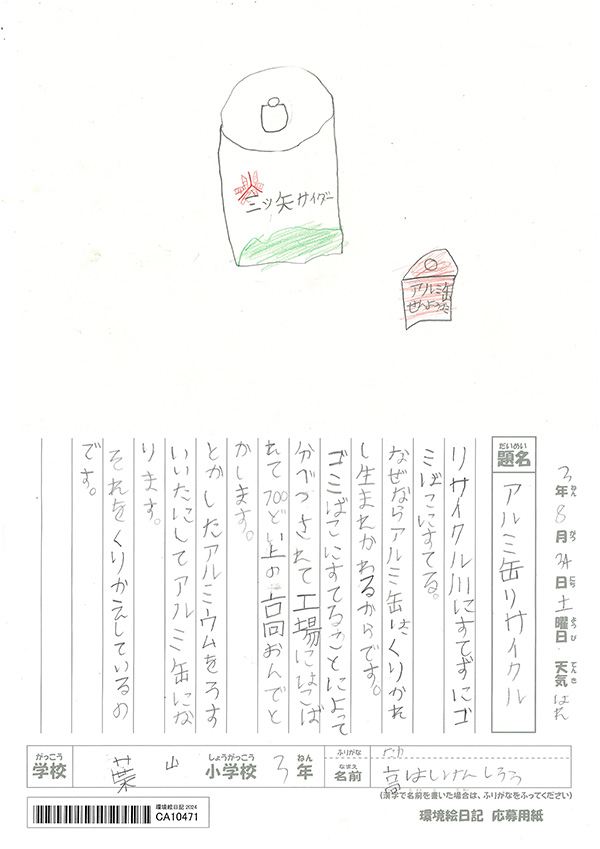 三ツ矢サイダー
アルミ缶
せんようだ
3年8月24日土曜日 天気はれ
ねん
がつ
にち
ようび
てんき
だいめい
題名
アルミ缶リサイクル
リサイクル川にすてずにゴ
ミばこにすてる。
なぜならアルミ缶はくりかえ
し生まれかわるからです。
ゴミばこにすてることによって
分べつされて工場にはこば
れて700どい上の高おんでと
かします。
とかしたアルミウムをうす
いいたにしてアルミ缶にな
ります。
それをくりかえしているの
です。
がっこう
学校
葉山
しょうがっこう
小学校
3
ねん
年
ふりがな
たか
なまえ
名前
高はしけんしろう
(漢字で名前を書いた場合は、ふりがなをふってください)
環境絵日記2024
CA10471
環境絵日記 応募用紙